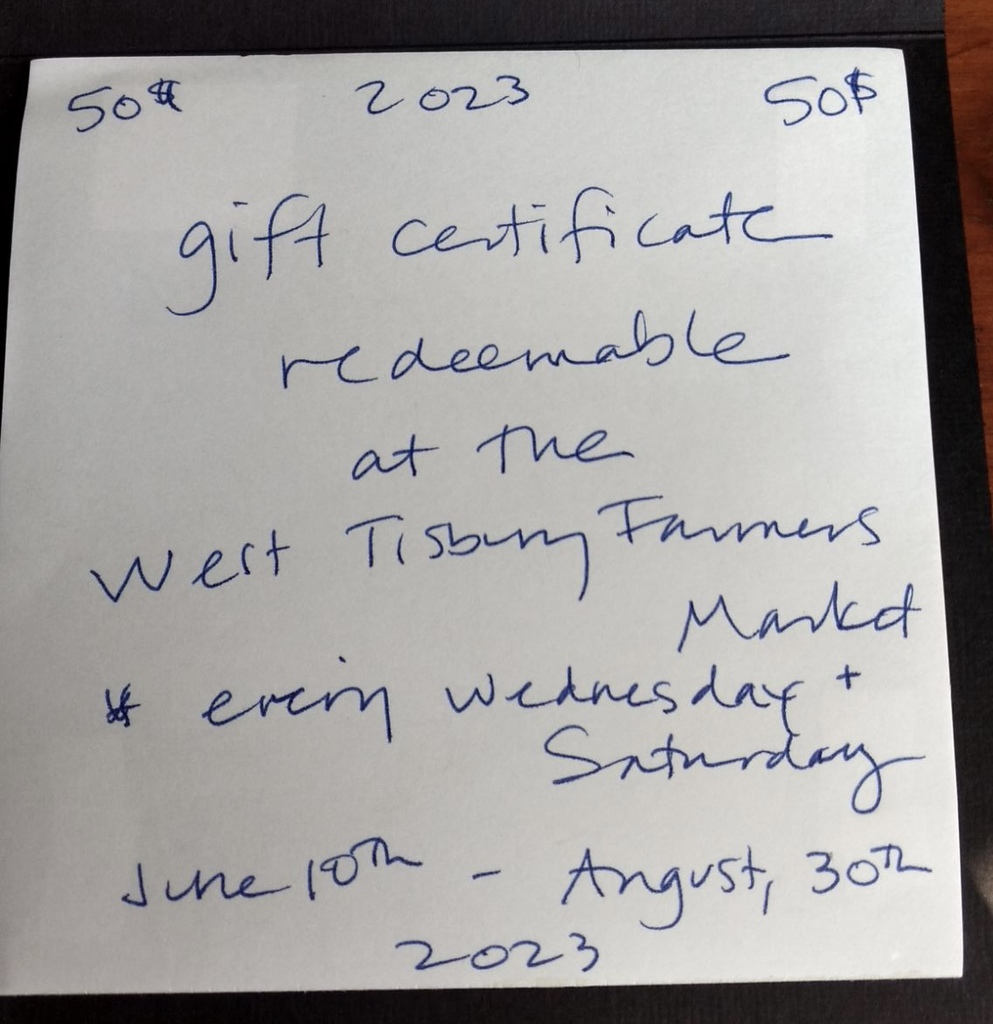 50$ 2023 50$
gift certificate
redeemable
at the
West Tisbury Farmers
Market
* every Wednesday +
Saturday
June 10th - August, 30th
2023